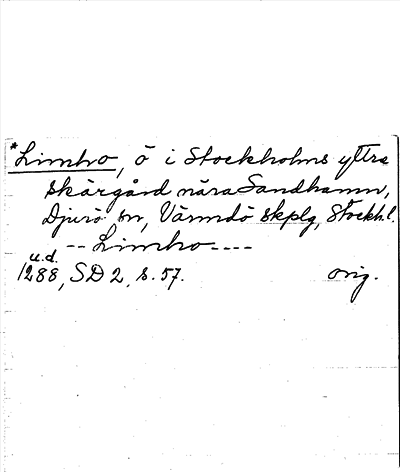 *Limho, ö i Stockholms yttra
skärgård nära Sandhamn,
Djurö sn, Värmdö skplg, Stockh.l.
-- Limho ----
u.d.
1288, SD 2, s. 57. orig.